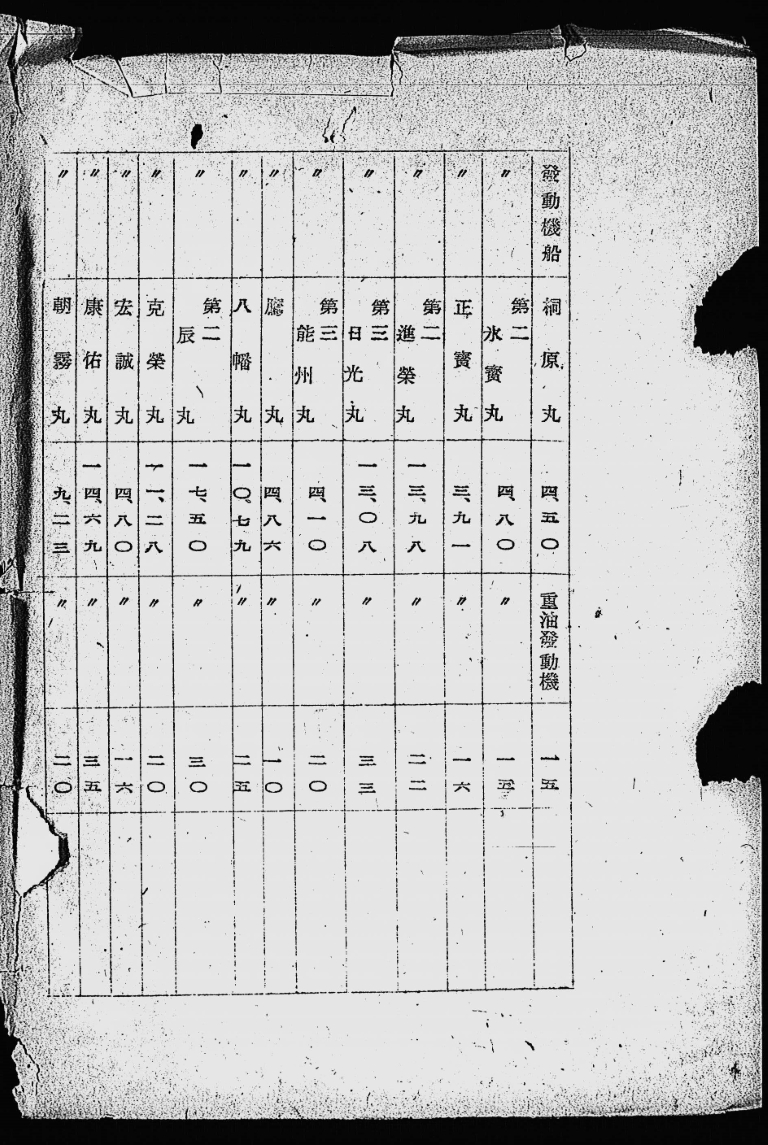 發動機船 桐原丸 四、五〇 重油發動機 一五
〃 第二氷寳丸 四、八〇 〃 一五
〃 正寳丸 三、九一 〃 一六
〃 第二進榮丸 一三、九八 〃 二二
〃 第三日光丸 一三、〇八 〃 三三
〃 第三能州丸 四、一〇 〃 二〇
〃 丸 四、八六 〃 一〇
〃 八幡丸 一〇、七九 〃 二五
〃 第二辰丸 一七、五〇 〃 三〇
〃 克榮丸 一一、二八 〃 二〇
〃 宏誠丸 四、八〇 〃 一六
〃 康佑丸 一四、六九 〃 三五
〃 朝霧丸 九、二三 〃 二〇